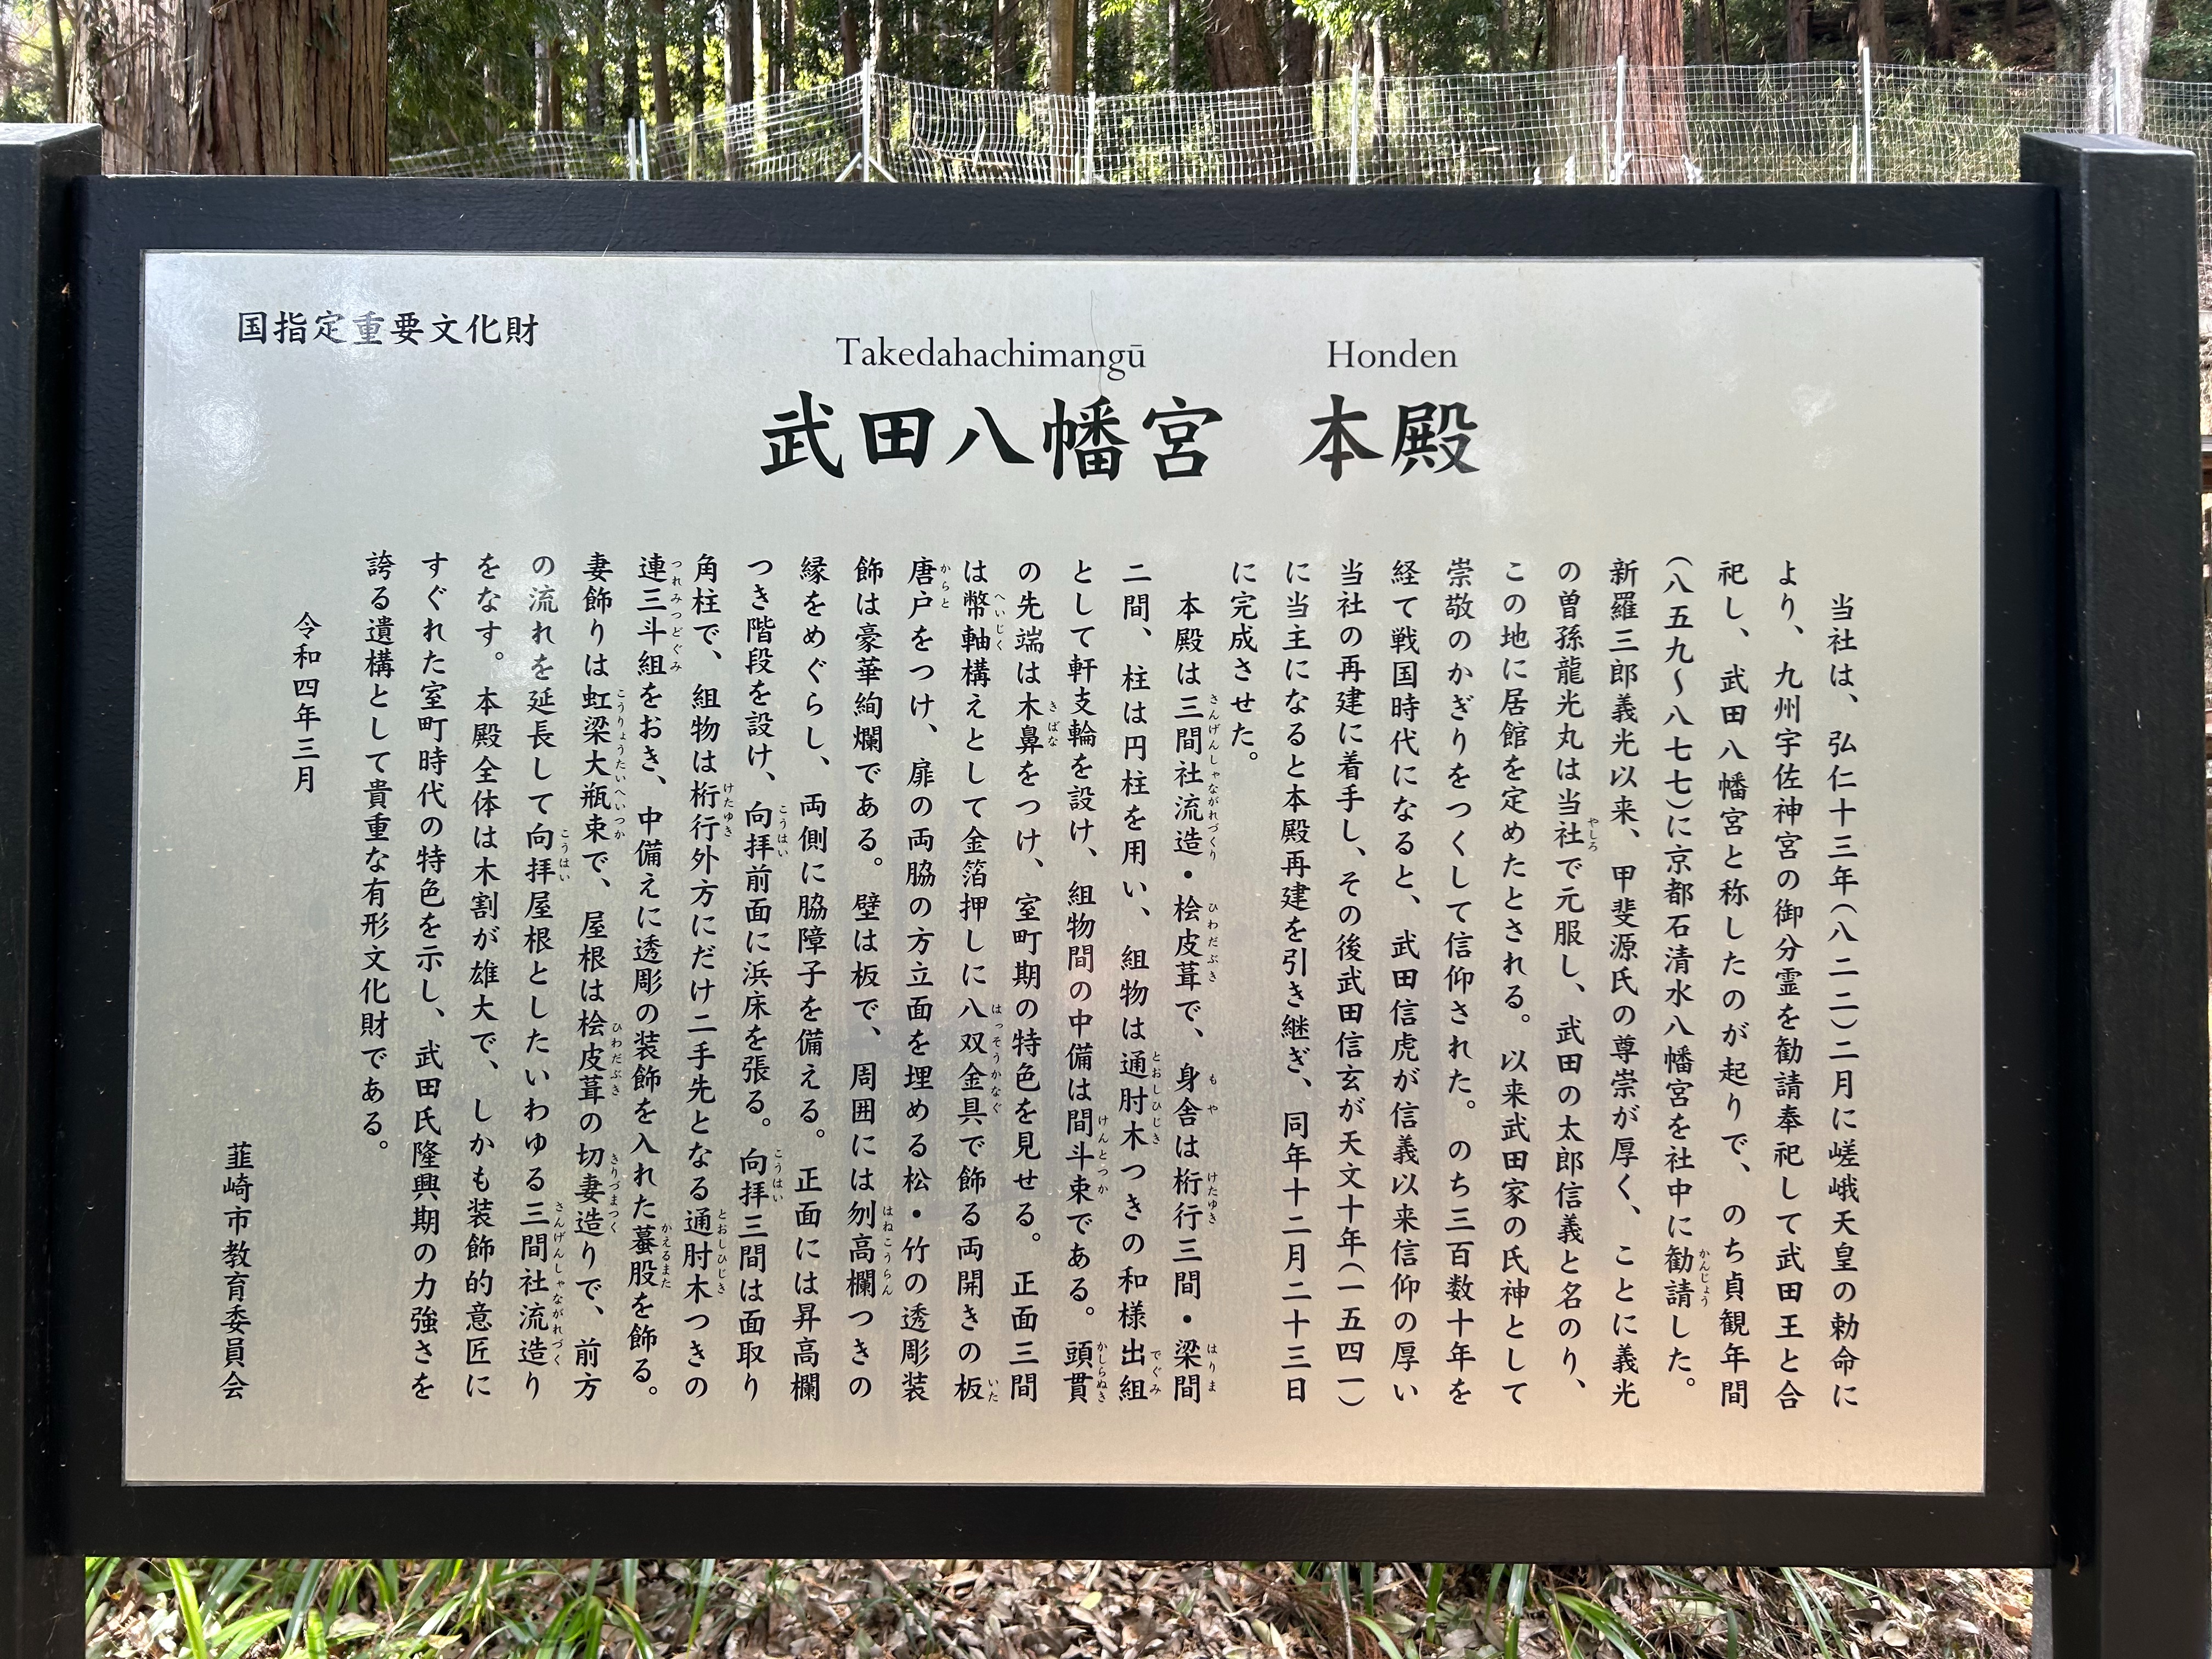 国指定重要文化財
Takedahachimangū Honden
武田八幡宮 本殿
当社は、弘仁十三年(八二二)二月に嵯峨天皇の勅命に
より、九州宇佐神宮の御分霊を勧請奉祀して武田王と合
祀し、武田八幡宮と称したのが起りで、のち貞観年間
(八五九〜八七七)に京都石清水八幡宮を社中に勧請した。
新羅三郎義光以来、甲斐源氏の尊崇が厚く、ことに義光
の曽孫龍光丸は当社で元服し、武田の太郎信義と名のり、
この地に居館を定めたとされる。以来武田家の氏神として
崇敬のかぎりをつくして信仰された。のち三百数十年を
経て戦国時代になると、武田信虎が信義以来信仰の厚い
当社の再建に着手し、その後武田信玄が天文十年(一五四一)
に当主になると本殿再建を引き継ぎ、同年十二月二十三日
に完成させた。
本殿は三間社流造・桧皮葺で、身舎は桁行三間・梁間
二間、柱は円柱を用い、組物は通肘木つきの和様出組
として軒支輪を設け、組物間の中備は間斗束である。頭貫
の先端は木鼻をつけ、室町期の特色を見せる。正面三間
は幣軸構えとして金箔押しに八双金具で飾る両開きの板
唐戸をつけ、扉の両脇の方立面を埋める松・竹の透彫装
飾は豪華絢爛である。壁は板で、周囲には刎高欄つきの
縁をめぐらし、両側に脇障子を備える。正面には昇高欄
つき階段を設け、向拝前面に浜床を張る。向拝三間は面取り
角柱で、組物は桁行外方にだけ二手先となる通肘木つきの
連三斗組をおき、中備えに透彫の装飾を入れた蟇股を飾る。
妻飾りは虹梁大瓶束で、屋根は桧皮葺の切妻造りで、前方
の流れを延長して向拝屋根としたいわゆる三間社流造り
をなす。本殿全体は木割が雄大で、しかも装飾的意匠に
すぐれた室町時代の特色を示し、武田氏隆興期の力強さを
誇る遺構として貴重な有形文化財である。
令和四年三月
韮崎市教育委員会